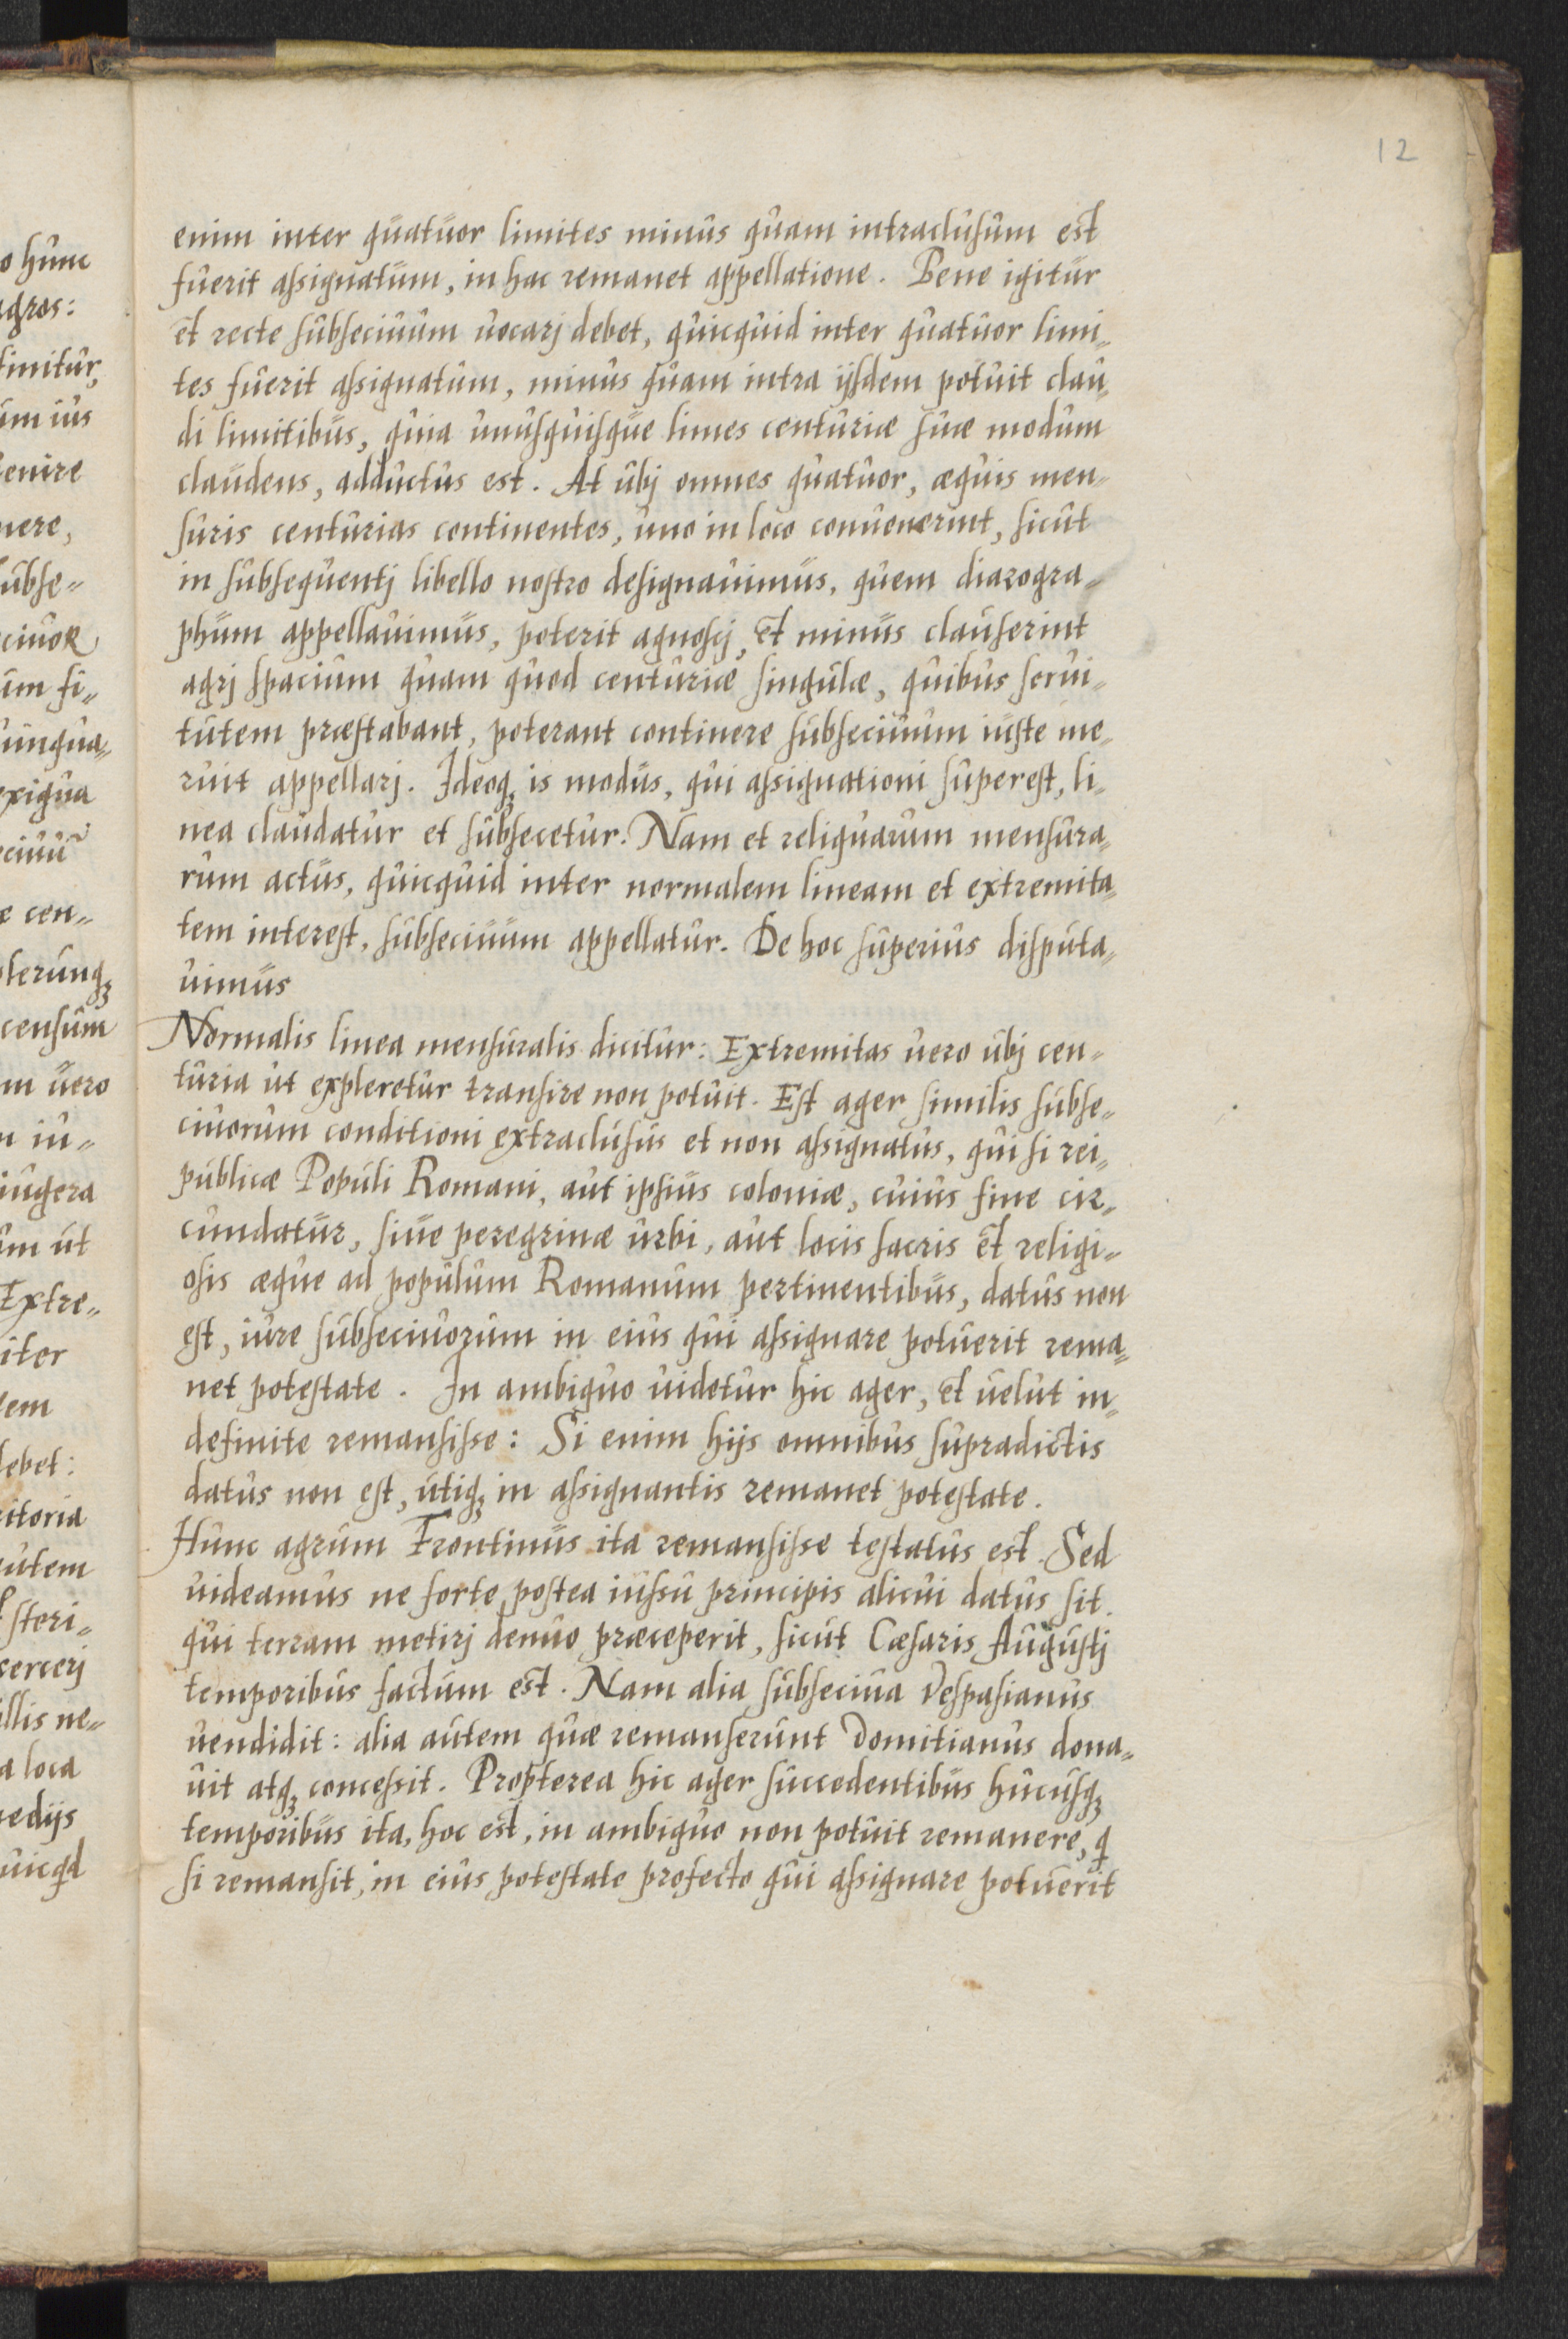 12
enim inter quatuor limites minus quam intraclusum est
fuerit assignatum, in hac remanet appellatione. Bene igitur
et recte subseciuum uocarj debet, quicquid inter quatuor limi„
tes fuerit assignatum, minus quam intra ijsdem potuit clau„
di limitibus, quia unusquisque limes centuriæ suæ modum
claudens, adductus est. At ubj omnes quatuor, æquis men„
suris centurias continentes, uno in loco conuenerint, sicut
in subsequentj libello nostro designauimus, quem diazogra„
phum appellauimus, poterit agnoscj, et minus clauserint
agrj spacium quam quod centuriæ singulæ, quibus serui„
tutem præstabant, poterant continere subseciuum iuste me„
ruit appellarj. Ideoq; is modus, qui assignationi superest, li„
nea claudatur et subsecetur. Nam et reliquarum mensura„
rum actus, quicquid inter normalem lineam et extremita„
tem interest, subseciuum appellatur. De hoc superius disputa„
uimus
Normalis linea mensuralis dicitur: Extremitas uero ubj cen„
turia ut expleretur transire non potuit. Est ager similis subse„
ciuorum conditioni extraclusus et non assignatus, qui si rei„
publicæ Populi Romani, aut ipsius coloniæ, cuius fine cir„
cundatur, siue peregrinæ urbi, aut locis sacris et religi„
osis æque ad populum Romanum pertinentibus, datus non
est, iure subseciuorum in eius qui assignare potuerit rema„
net potestate. In ambiguo uidetur hic ager, et uelut in„
definite remansisse: Si enim hijs omnibus supradictis
datus non est, utiq; in assignantis remanet potestate.
Hunc agrum Frontinus ita remansisse testatus est. Sed
uideamus ne forte postea iussu principis alicui datus sit.
qui terram metirj denuo præceperit, sicut Cæsaris Augustj
temporibus factum est. Nam alia subseciua Vespasianus
uendidit: alia autem quæ remanserunt Domitianus dona„
uit atq; concessit. Propterea hic ager succedentibus hucusq;
temporibus ita, hoc est, in ambiguo non potuit remanere, q
si remansit, in eius potestate profecto qui assignare potuerit
o hunc
agros:
finitur,
um ius
uenire
nere,
subse„
ciuoR
um si„
unqua„
exigua
eciuũ
e cen„
plerunq;
censum
m uero
n iu„
iugera
um ut
Extre„
iter
dem
debet:
ritoria
autem
steri„
cercerj
illis ne„
a loca
medijs
quicqd